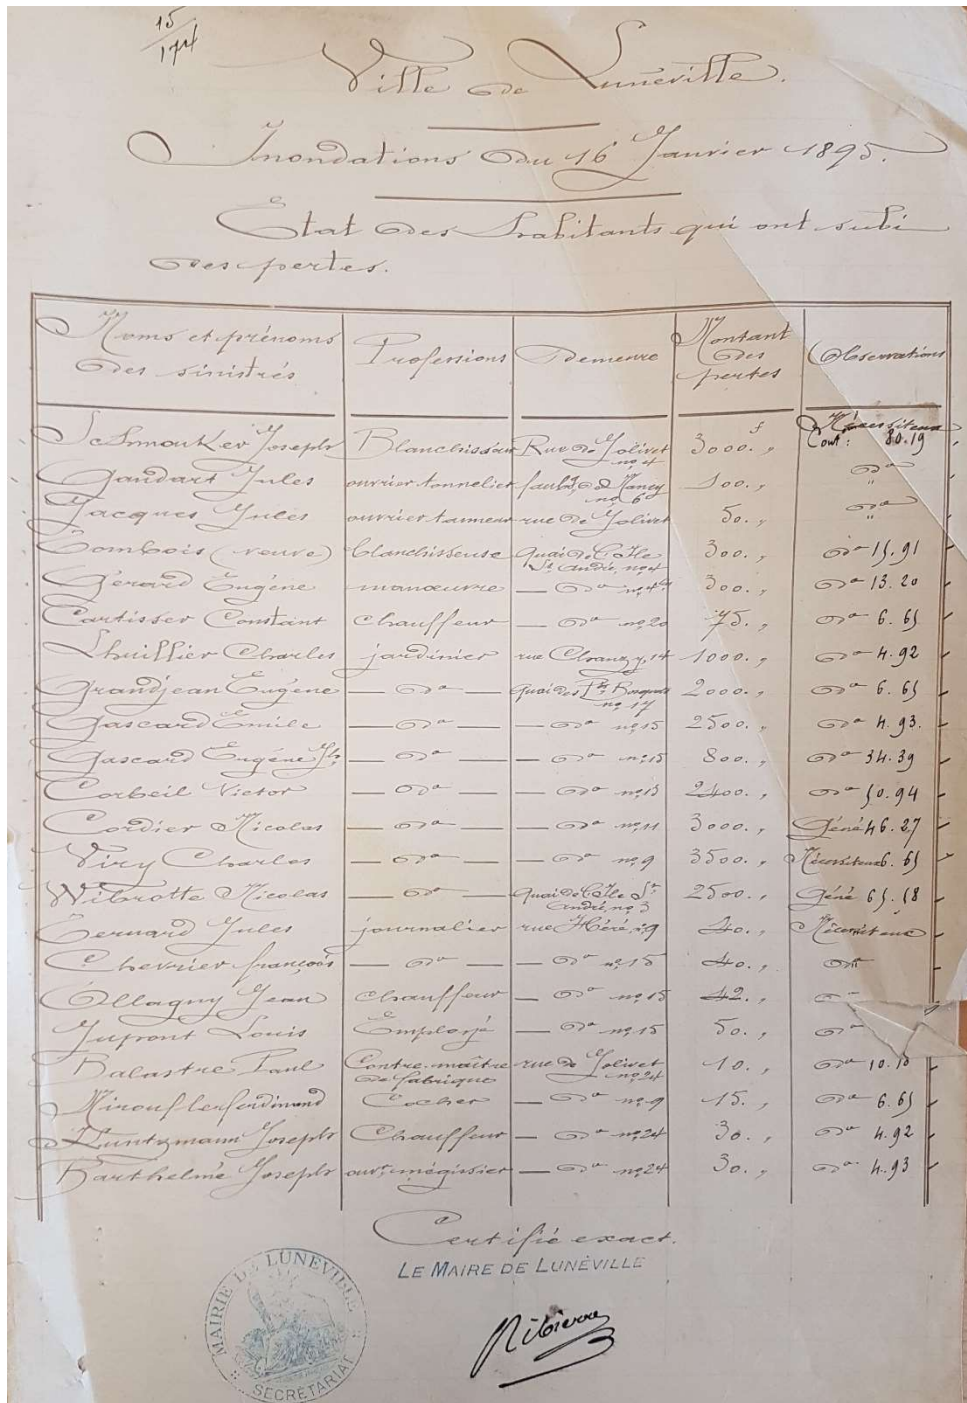 15
174
Ville de Lunéville.
Inondations du 16 Janvier 1895.
Etat des habitants qui ont subi
des pertes.
Noms et prénoms des sinistrés Professions Demeure Montant des pertes Observations
Schmouker Joseph Blanchisseur Rue de Jolivet no 4 3000. f " Nécessiteux Cont: 80.19
Gaudart Jules ouvrier tonnelier faubg de Nancy no 6 100. " do "
Jacques Jules ouvrier tanneur rue de Jolivet 50. " do "
Combois (veuve) blanchisseuse Quai de l'Ile St André, no 4 300. " do 15.91
Gérard Eugène manœuvre — do no 4 300. " do 13.20
Cartisser Constant chauffeur — do no 20 75. " do 6.65
Lhuillier Charles jardinier rue Chanzy, 14 1000. " do 4.92
Grandjean Eugène — do — Quai des Pts Bosquets no 17 2000. " do 6.65
Gascard Emile — do — — do no 15 2500. " do 4.93.
Gascard Eugène fls — do — — do no 15 800. " do 34.39
Corbeil Victor — do — — do no 13 2400. " do 50.94
Cordier Nicolas — do — — do no 11 3000. " Géné 46.27
Viry Charles — do — — do no 9 3500. " Nécessiteux 6.65
Wibrotte Nicolas — do — Quai de l'Ile St André, no 3 2500. " Géné 65.58
Bernard Jules journalier rue Héré, 9 40. " Nécessiteux
Chevrier françois — do — — do no 15 40. " do "
Ollagny Jean chauffeur — do no 15 42. "
Jupront Louis Employé — do no 15 50. " do
Balastre Paul Contre-maître de fabrique rue de Jolivet no 24 10. " do 10.18
Miroufler ferdinand Cocher — do no 9 15. " do 6.65
Kuntzmann Joseph Chauffeur — do no 24 30. " do 4.92
Barthelmé Joseph ouvr. mégissier — do no 24 30. " do 4.93
Certifié exact.
LE MAIRE DE LUNÉVILLE
Ribierre
MAIRIE DE LUNÉVILLE
SECRÉTARIAT